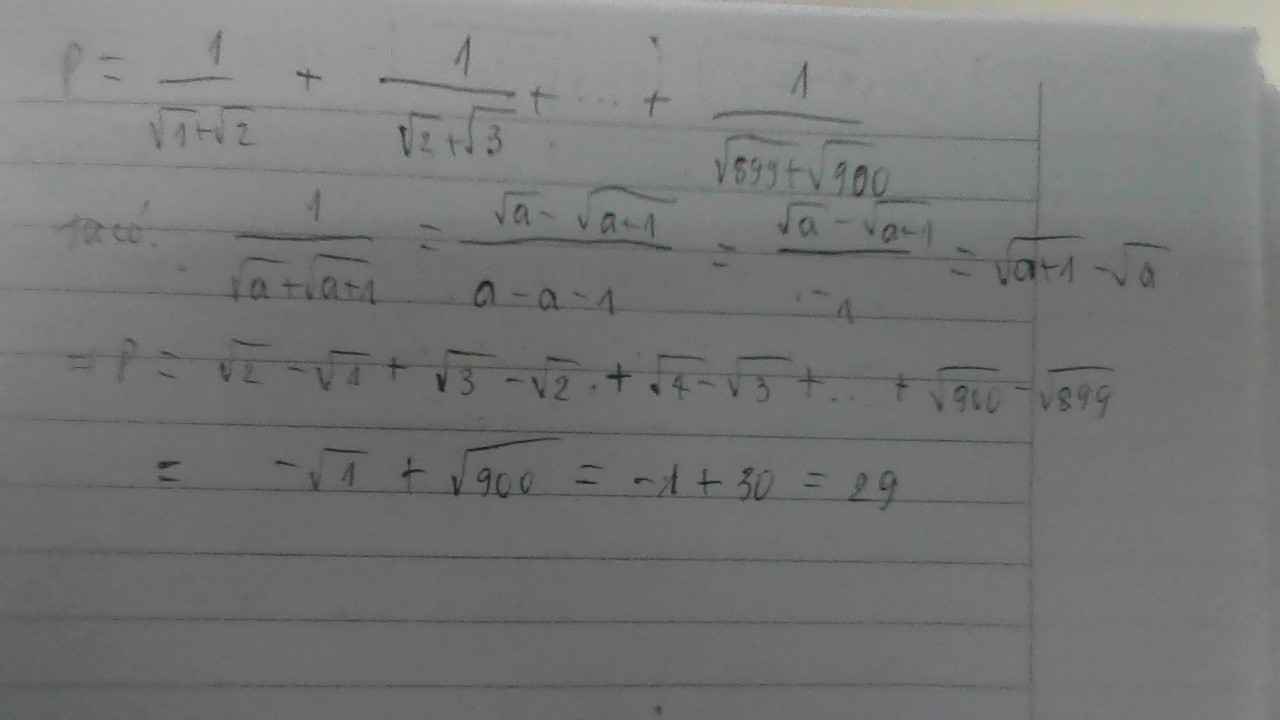 P = 1/(√1+√2) + 1/(√2+√3) + ... + 1/(√899+√900)
ta có: 1/(√a+√(a+1)) = (√a-√(a+1))/(a-a-1) = (√a-√(a+1))/(-1) = √(a+1)-√a
= P = √2-√1+√3-√2+√4-√3+...+√900-√899
= -√1+√900 = -1+30 = 29